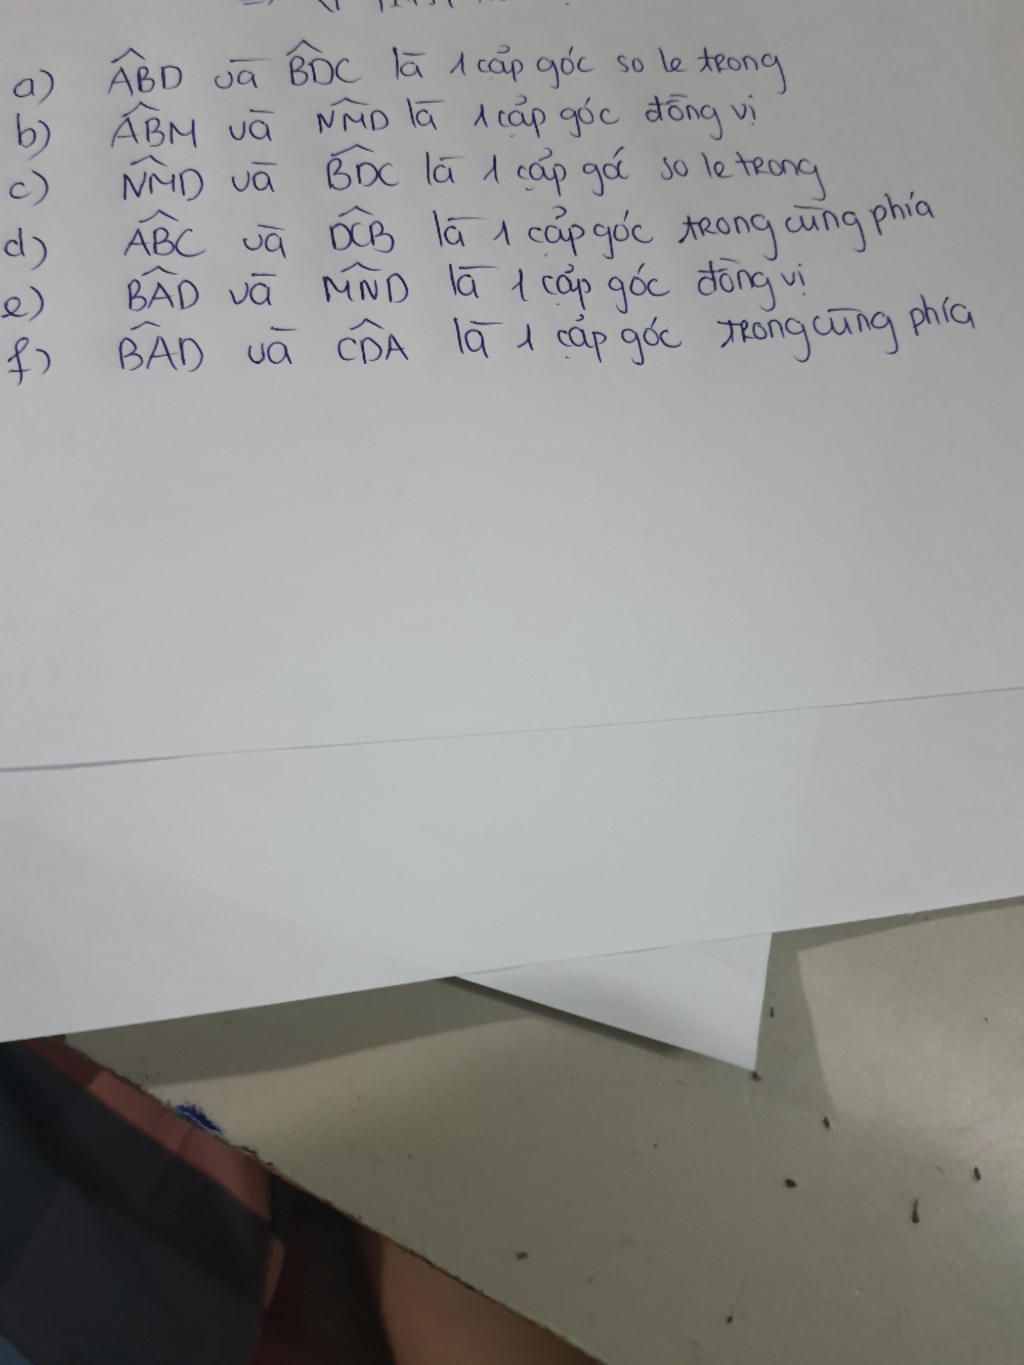 a) ABD và BDC là 1 cặp góc so le trong
b) ABM và NMD là 1 cặp góc đồng vị
c) NMD và BDC là 1 cặp góc so le trong
d) ABC và DCB là 1 cặp góc trong cùng phía
e) BAD và MND là 1 cặp góc đồng vị
f) BAD và CDA là 1 cặp góc trong cùng phía